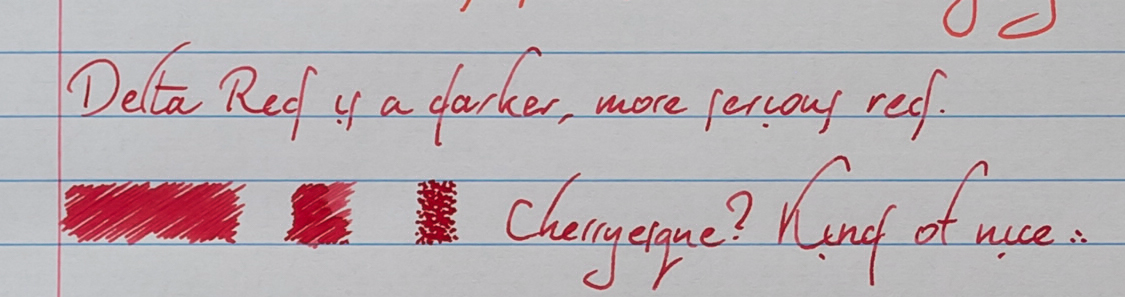 Delta Red is a darker, more serious red.
Cherryesque? Kind of nice :.